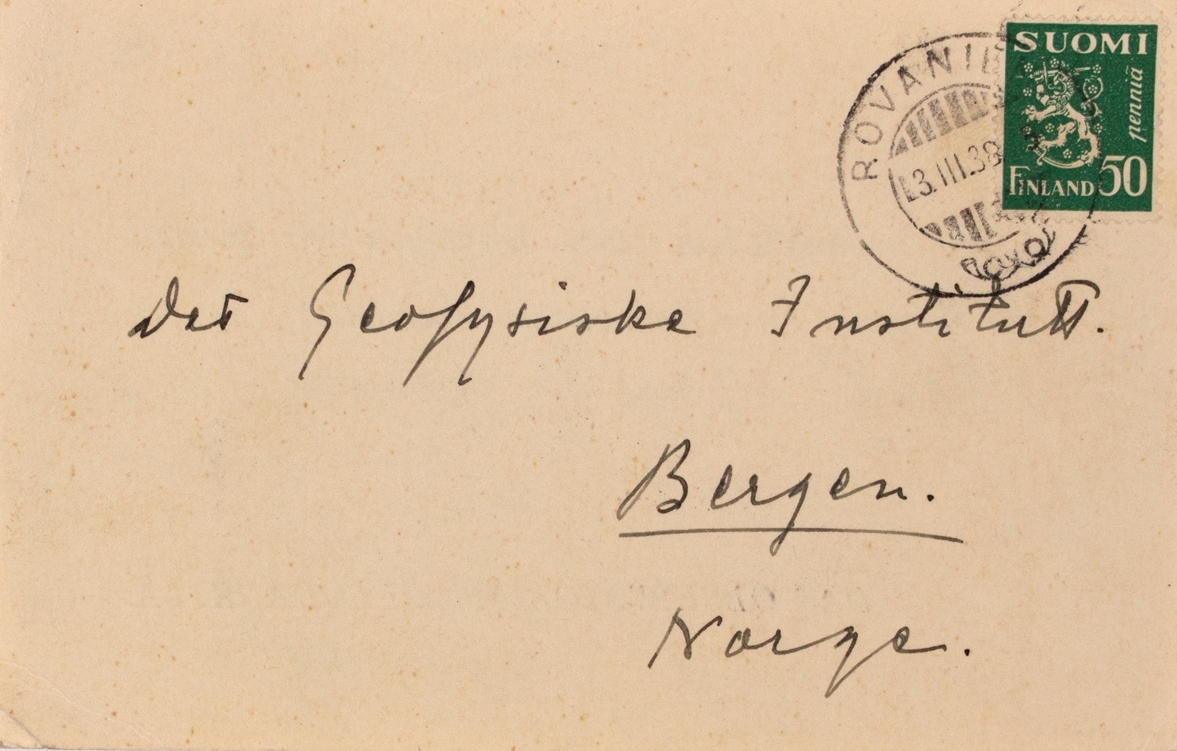 SUOMI
penniä
FINLAND 50
ROVANIE
3.III.38
Det Geofysiske Institutt.
Bergen.
Norge.